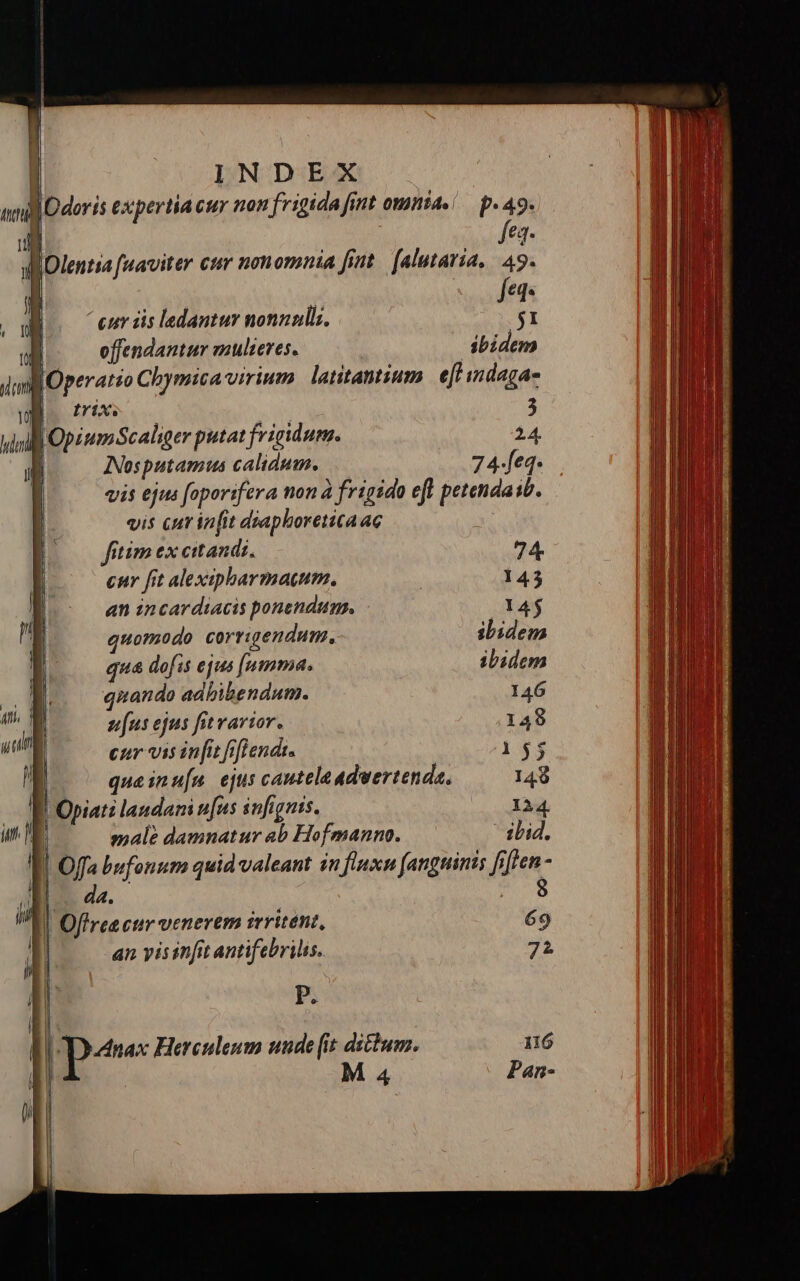 INDEX
Odoris expertia cur non frigida ſint omnia. p. 49.
ſeq.
Olentia ſuaviter cur non omnia ſint ſalutaria, 49.
ſeq.
cur iis ledantur nonnulli. 51
offendantur mulieres. ibidem
Operatio Chymica virium latitantium eſt indaga-
trix. 3
Opium Scaliger putat frigidum. 24
Nos putamus calidum. 74. ſeq.
vis ejus ſoporifera non à frigido eſt petenda ib.
vis cur inſit diaphoretica ac
ſitim excitandi. 74
cur ſit alexipharmacum, 143
an in cardiacis ponendum. 145
quomodo corrigendum, ibidem
quæ doſis ejus ſumma. ibidem
quando adhibendum. 146
uſus ejus ſit rarior. 148
cur vis inſit ſiſtendi. 155
quæ in uſu ejus cautelæ advertendæ. 148
Opiati laudani uſus inſignis. 124
malè damnatur ab Hofmanno. ibid.
Oſſa bufonum quid valeant in fluxu ſanguinis ſiſten-
da. 8
Oſtreæ cur venerem irritent, 69
an vis inſit antifebrilis. 72
P.
PAnax Herculeum unde ſit dictum. 116
M 4 Pan-